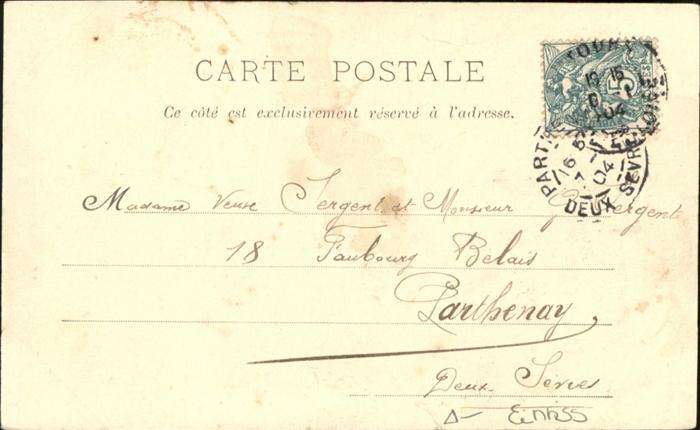 CARTE POSTALE
Ce côté est exclusivement réservé à l'adresse.
5
04
PARTHE
16
04
DEUX SÈVRES
Madame Veuve Sergent et Monsieur Sergent
18 Faubourg Belais
Parthenay
Deux-Sèvres